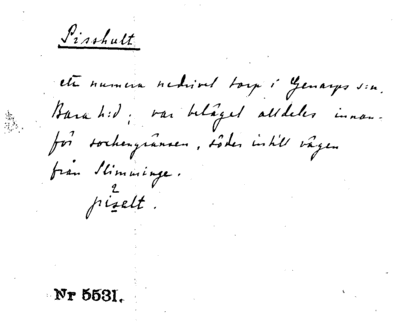 Pisshult
ett numera nedrivet torp i Genarps s:n.
Bara h:d; var beläget alldeles innan-
för sockengränsen, söder intill vägen
från Slimminge.
2
piselt.
Nr 5531.